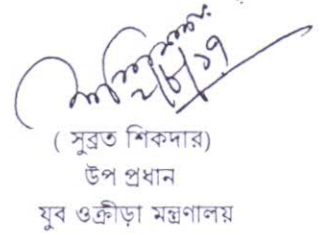 ( সুব্রত শিকদার)
উপ প্রধান
যুব ওক্রীড়া মন্ত্রণালয়